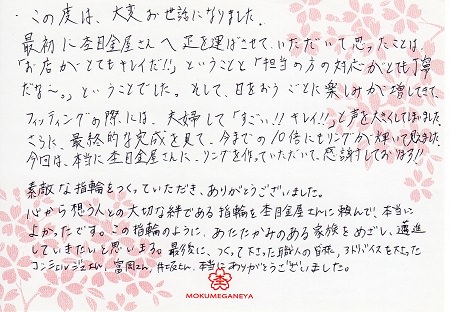 この度は、大変お世話になりました。
最初に杢目金屋さんへ足を運ばせていただいて思ったことは、
「お店がとてもキレイだ!!」ということと「担当の方の対応がとても丁寧
だな〜。」ということでした。そして、日をおうごとに楽しみが増してきて、
フィッティングの際には、夫婦して「すごい!!キレイ!!」と声を大きくしてしまいました。
さらに、最終的な完成を見て、今までの10倍にもリングが輝いて見えました。
今回は、本当に杢目金屋さんに、リングを作っていただいて、感謝しております!!
素敵な指輪をつくっていただき、ありがとうございました。
心から想う人との大切な絆である指輪を杢目金屋さんに頼んで、本当に
よかったです。この指輪のように、あたたかみのある家族をめざし、邁進
していきたいと思います。最後に、つくって下さった職人の皆様、アドバイスを下さった
コンシェルジュさん、富岡さん、井坂さん、本当にありがとうございました。
MOKUMEGANEYA